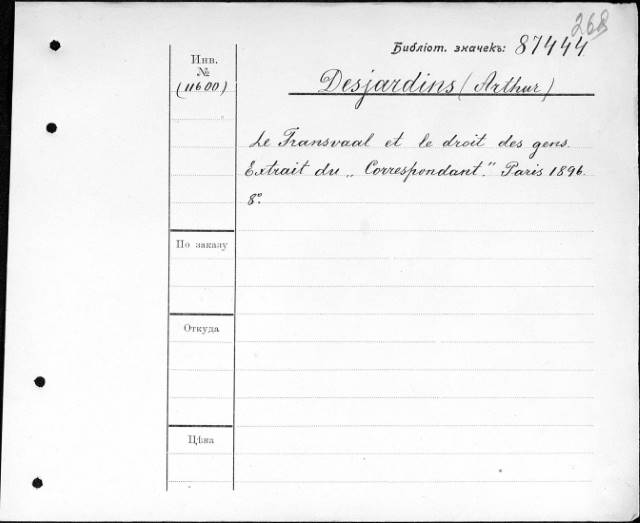 268
Библіот. значекъ: 87444
Инв.
№
(11600)
Desjardins (Arthur)
Le Transvaal et le droit des gens.
Extrait du „Correspondant." Paris 1896.
8°.
По заказу
Откуда
Цѣна